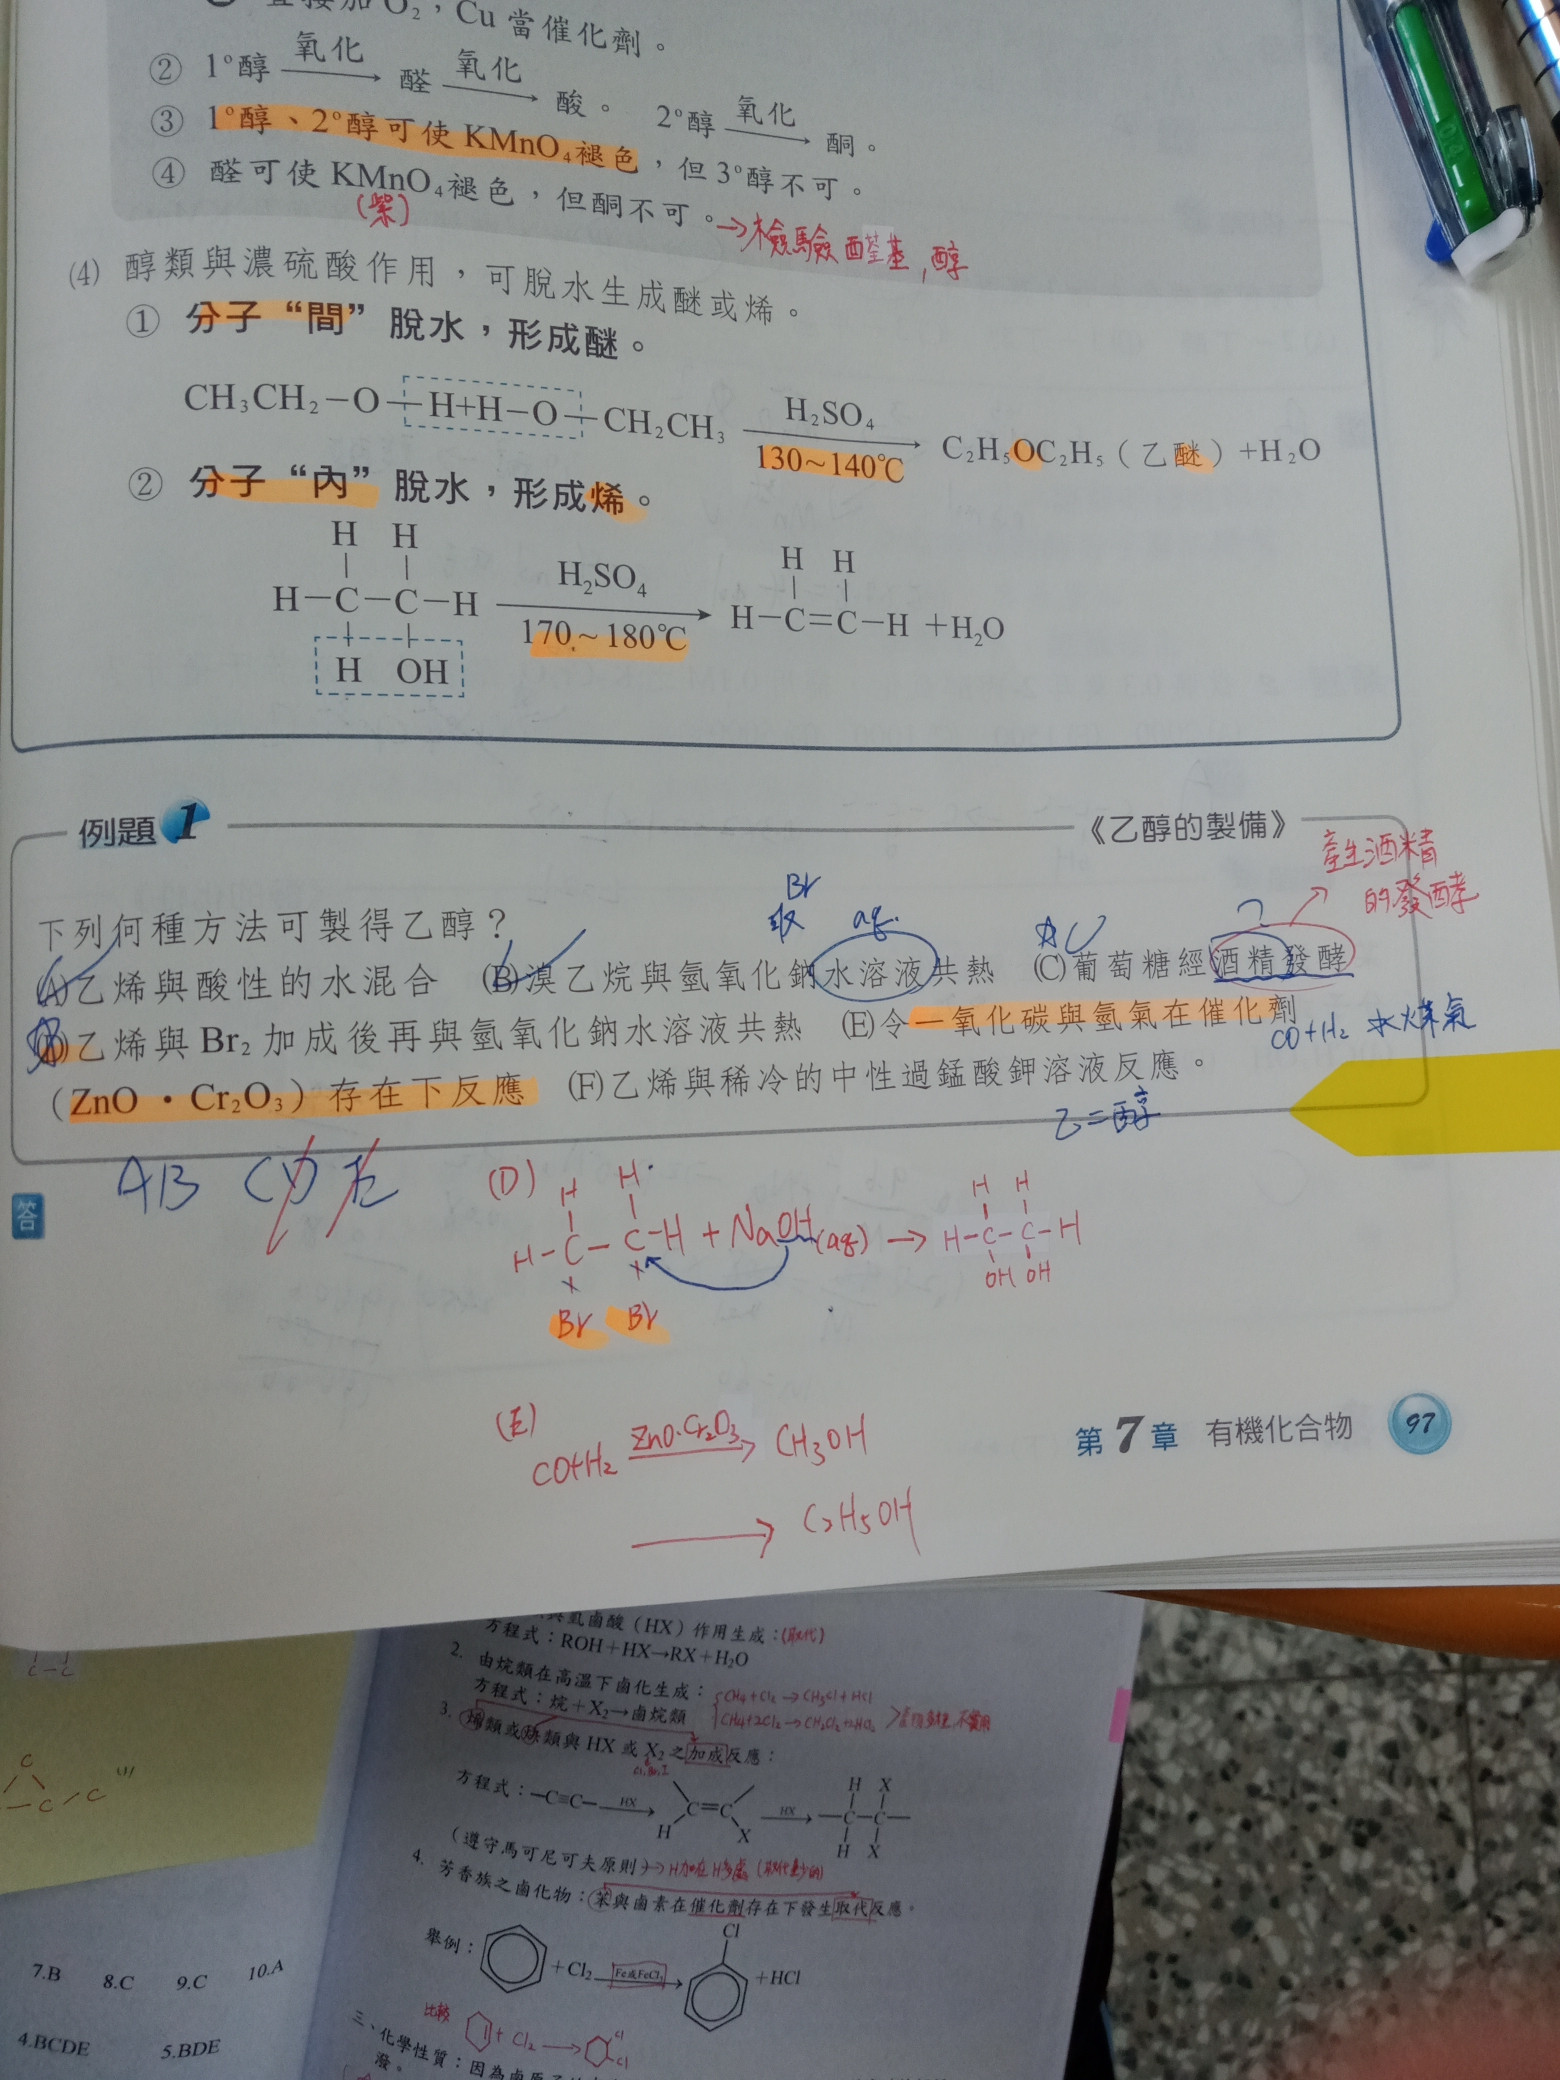 直接加O₂,Cu當催化劑。
② 1°醇 氧化→ 醛 氧化→ 酸。 2°醇 氧化→ 酮。
③ 1°醇、2°醇可使KMnO₄褪色,但3°醇不可。
④ 醛可使KMnO₄褪色,但酮不可。→檢驗醛基,醇
(紫)
(4) 醇類與濃硫酸作用,可脫水生成醚或烯。
① 分子“間”脫水,形成醚。
CH₃CH₂−O−H+H−O−CH₂CH₃ H₂SO₄ 130~140℃ → C₂H₅OC₂H₅(乙醚)+H₂O
② 分子“內”脫水,形成烯。
H H
H−C−C−H H₂SO₄ 170~180℃ → H−C=C−H +H₂O
H OH
H H
例題1 《乙醇的製備》
產生酒精
的發酵
Br
取 aq.
下列何種方法可製得乙醇?
(A)乙烯與酸性的水混合 (B)溴乙烷與氫氧化鈉水溶液共熱 (C)葡萄糖經酒精發酵
(D)乙烯與Br₂加成後再與氫氧化鈉水溶液共熱 (E)令一氧化碳與氫氣在催化劑
CO+H₂ 水煤氣
(ZnO・Cr₂O₃)存在下反應 (F)乙烯與稀冷的中性過錳酸鉀溶液反應。
乙二醇
答 AB C D E
(D)
H H
H-C-C-H + NaOH(aq) → H-C-C-H
Br Br
H H
OH OH
(E)
CO+H₂ ZnO·Cr₂O₃→ CH₃OH
→ C₂H₅OH
第7章 有機化合物 97
與氫鹵酸(HX)作用生成:(取代)
方程式:ROH+HX→RX+H₂O
2. 由烷類在高溫下鹵化生成:
方程式:烷+X₂→鹵烷類
CH₄+Cl₂→CH₃Cl+HCl
CH₄+2Cl₂→CH₂Cl₂+2HCl
3. 烯類或炔類與HX或X₂之加成反應:
Cl,Br,I
方程式:−C≡C− HX→ C=C HX→ −C−C−
H X
H X
H X
(遵守馬可尼可夫原則)→H加在H多處
4. 芳香族之鹵化物:苯與鹵素在催化劑存在下發生取代反應。
舉例: +Cl₂ Fe或FeCl₃→ Cl +HCl
比較 + Cl₂ → Cl Cl
三、化學性質:因為鹵
潑。
C-C
C
C C
7.B 8.C 9.C 10.A
4.BCDE 5.BDE